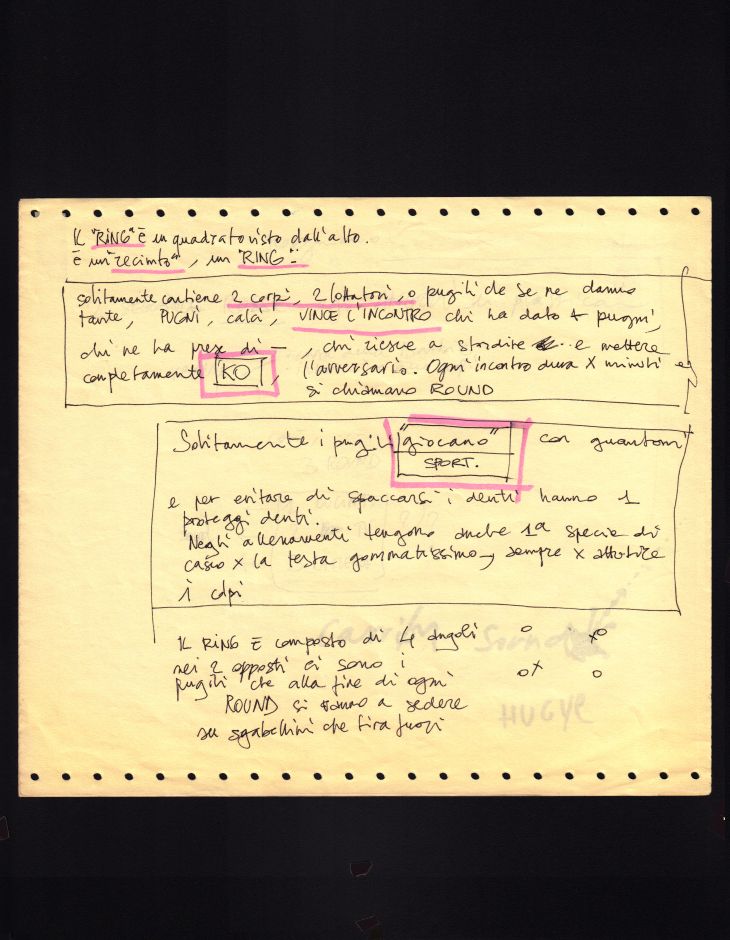 IL "RING" È un quadrato visto dall'alto.
È un "recinto", un "RING".
Solitamente contiene 2 corpi, 2 lottatori, o pugili che se ne danno
tante, PUGNI, calci, VINCE L'INCONTRO chi ha dato + pugni,
chi ne ha prese di —, chi riesce a stordire e mettere
completamente KO, l'avversario. Ogni incontro dura X minuti e
si chiamano ROUND
Solitamente i pugili "giocano" con guantoni
SPORT.
e per evitare di spaccarsi i denti hanno 1
proteggi denti.
Negli allenamenti tengono anche 1a specie di
casco x la testa gommatissimo, sempre x attutire
i colpi
IL RING È composto di 4 angoli
nei 2 opposti ci sono i
pugili che alla fine di ogni
ROUND si vanno a sedere
su sgabellini che tira fuori
HUGYR